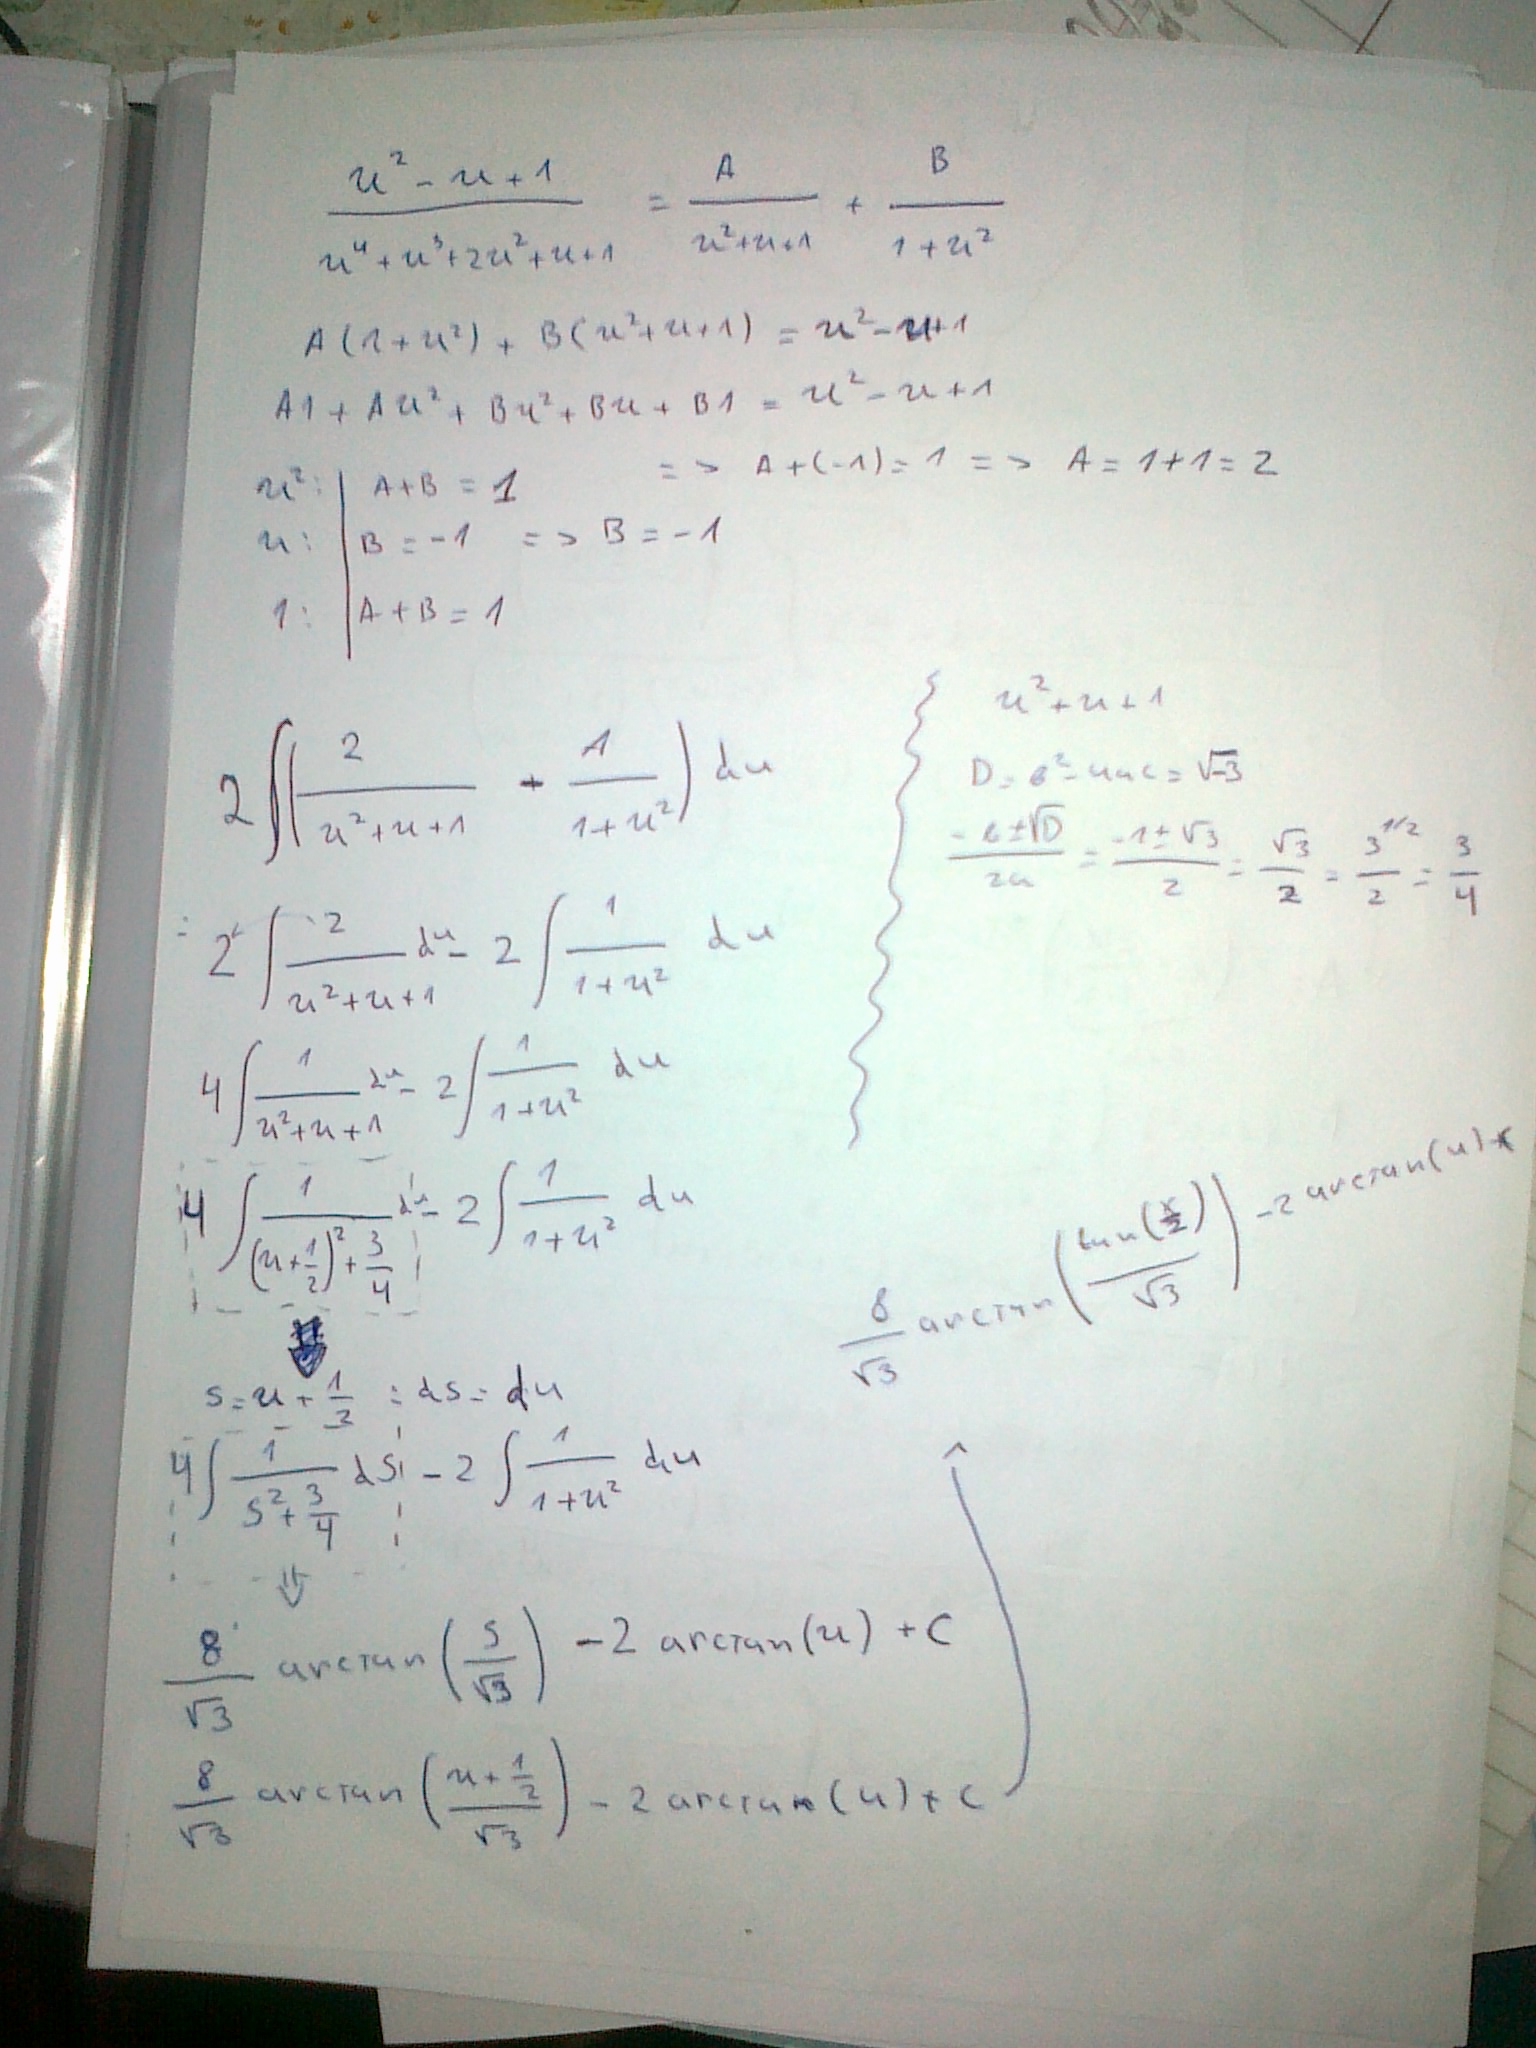 u² - u + 1 / u⁴ + u³ + 2u² + u + 1 = A / u² + u + 1 + B / 1 + u²
A(1 + u²) + B(u² + u + 1) = u² - u + 1
A1 + Au² + Bu² + Bu + B1 = u² - u + 1
u²: | A + B = 1 => A + (-1) = 1 => A = 1 + 1 = 2
u: | B = -1 => B = -1
1: | A + B = 1
2 ∫ ( 2 / u² + u + 1 - 1 / 1 + u² ) du
= 2 ∫ 2 / u² + u + 1 du - 2 ∫ 1 / 1 + u² du
4 ∫ 1 / u² + u + 1 du - 2 ∫ 1 / 1 + u² du
4 ∫ 1 / (u + 1/2)² + 3/4 du - 2 ∫ 1 / 1 + u² du
⇓
s = u + 1/2 : ds = du
4 ∫ 1 / s² + 3/4 ds - 2 ∫ 1 / 1 + u² du
⇓
8/√3 arctan ( s/√3 ) - 2 arctan(u) + C
8/√3 arctan ( u + 1/2 / √3 ) - 2 arctan(u) + C
u² + u + 1
D = b² - 4ac = √-3
-b ± √D / 2a = -1 ± √3 / 2 = √3 / 2 = 3^1/2 / 2 = 3/4
8/√3 arctan ( tan(x/2) / √3 ) - 2 arctan(u) + C